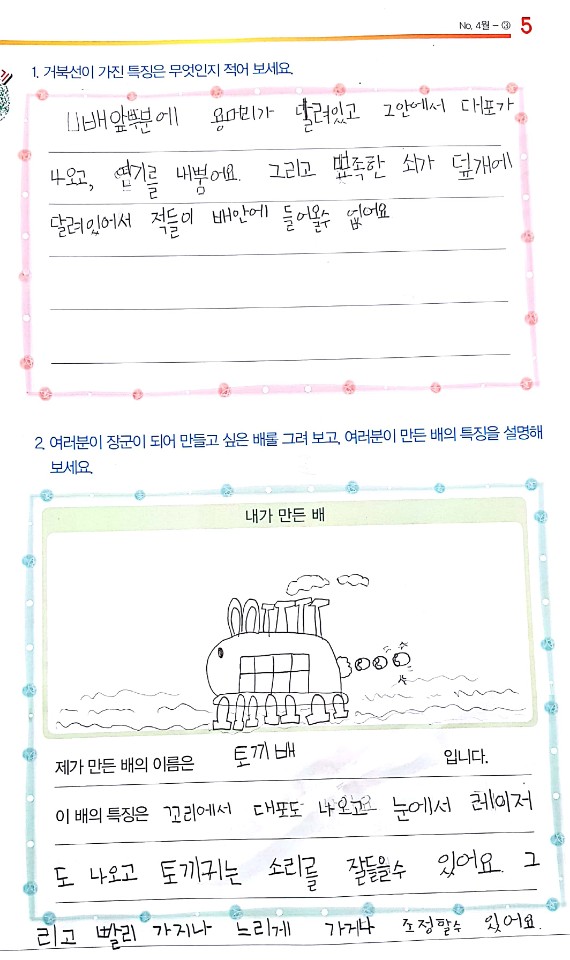 No. 4월 - ③ 5
1. 거북선이 가진 특징은 무엇인지 적어 보세요.
배앞뿌분에 용머리가 달려있고 그안에서 대포가
나오고, 연기를 내뿜어요. 그리고 뾰족한 쇠가 덮개에
달려있어서 적들이 배안에 들어올수 없어요
2. 여러분이 장군이 되어 만들고 싶은 배를 그려 보고, 여러분이 만든 배의 특징을 설명해
보세요.
내가 만든 배
제가 만든 배의 이름은 토끼배 입니다.
이 배의 특징은 꼬리에서 대포도 나오고 눈에서 레이저
도 나오고 토끼귀는 소리를 잘들을수 있어요. 그
리고 빨리 가지나 느리게 가거나 조정할수 있어요.